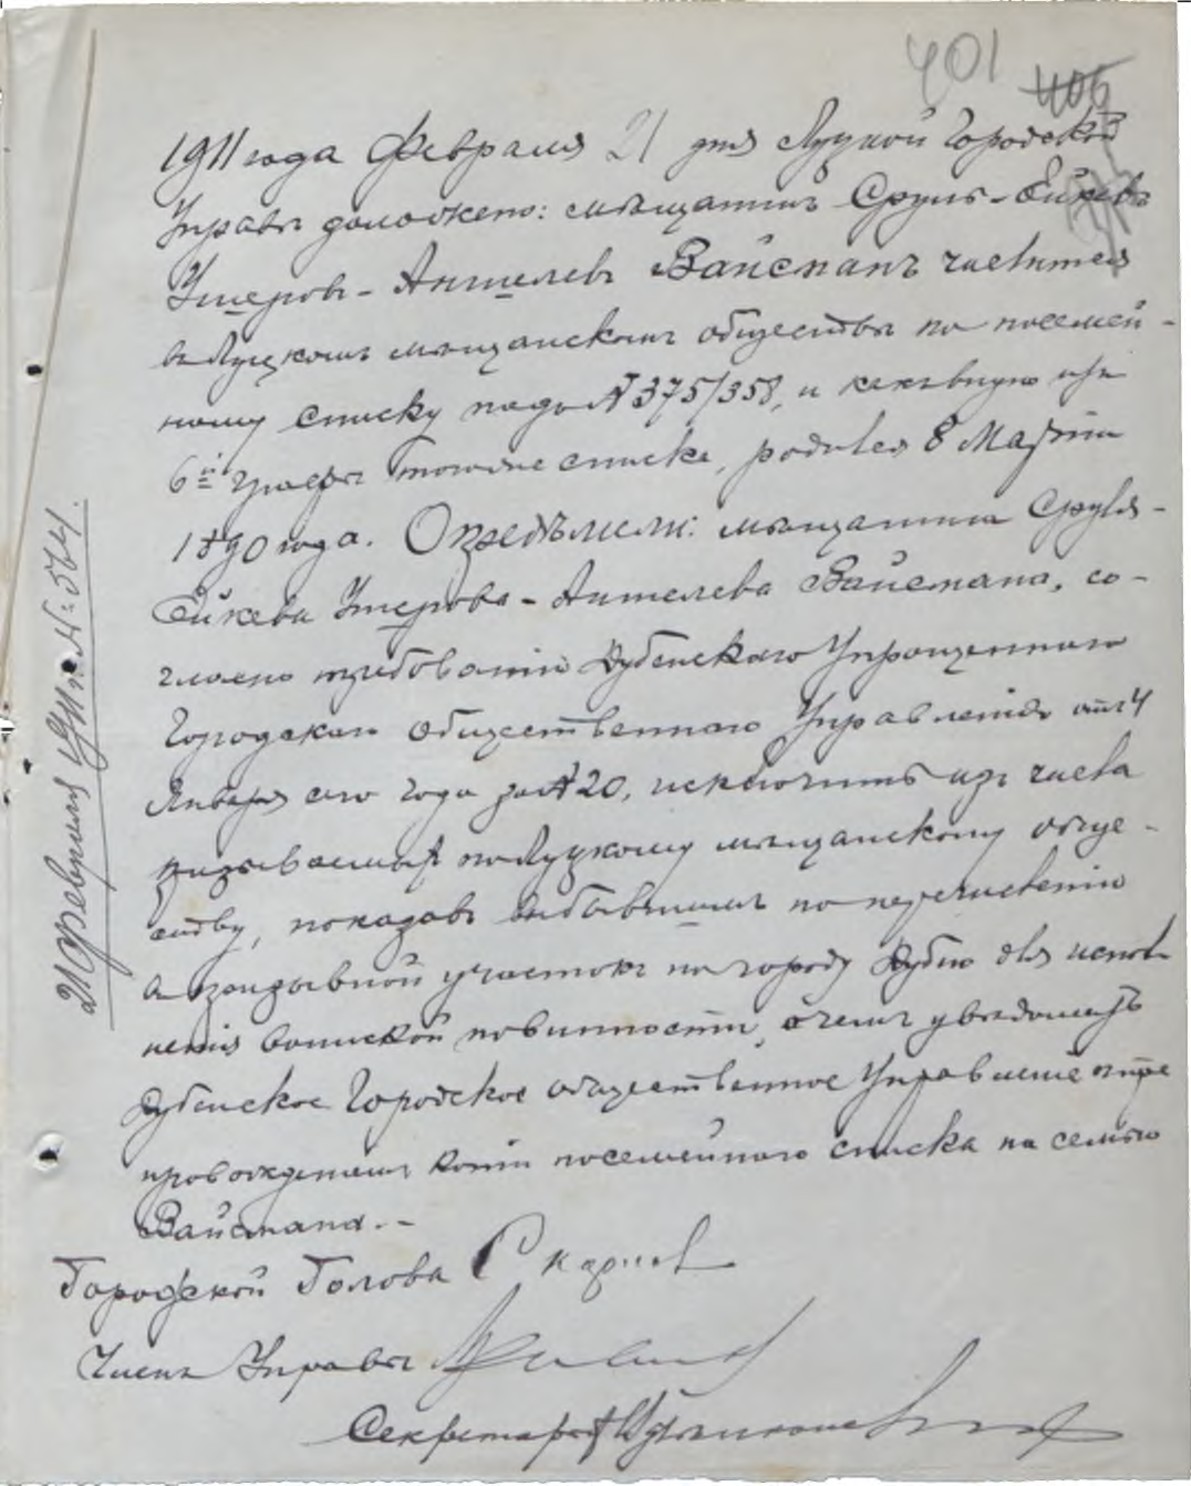 401
406
1911 года Февраля 21 дня Луцкой Городской
Управѣ доложено: мѣщанинъ Сруль-Ейкевъ
Ушеровъ-Аншелевъ Вайсманъ числится
въ Луцкомъ мѣщанскомъ обществѣ по посемей-
ному списку подъ № 375/358, и
6й Ушеръ того же списка, родился 8 Марта
1890 года. Опредѣлили: мѣщанина Сруля-
Ейкева Ушерова-Аншелева Вайсмана, со-
гласно требованія Дубенскаго Упрощеннаго
Городского общественнаго Управленія отъ 4
Января сего года за № 20, исключить изъ числа
призываемыхъ по Луцкому мѣщанскому обще-
ству, показавъ выбывшимъ по перечисленію
въ призывной участокъ по городу Дубно для испол
ненія воинской повинности, о чемъ увѣдомить
Дубенское Городское общественное Управленіе съ пре
провожденіемъ копіи посемейнаго списка на семью
Вайсмана.-
Городской Голова
Членъ Управы
Секретарь
21 февраля № 564.